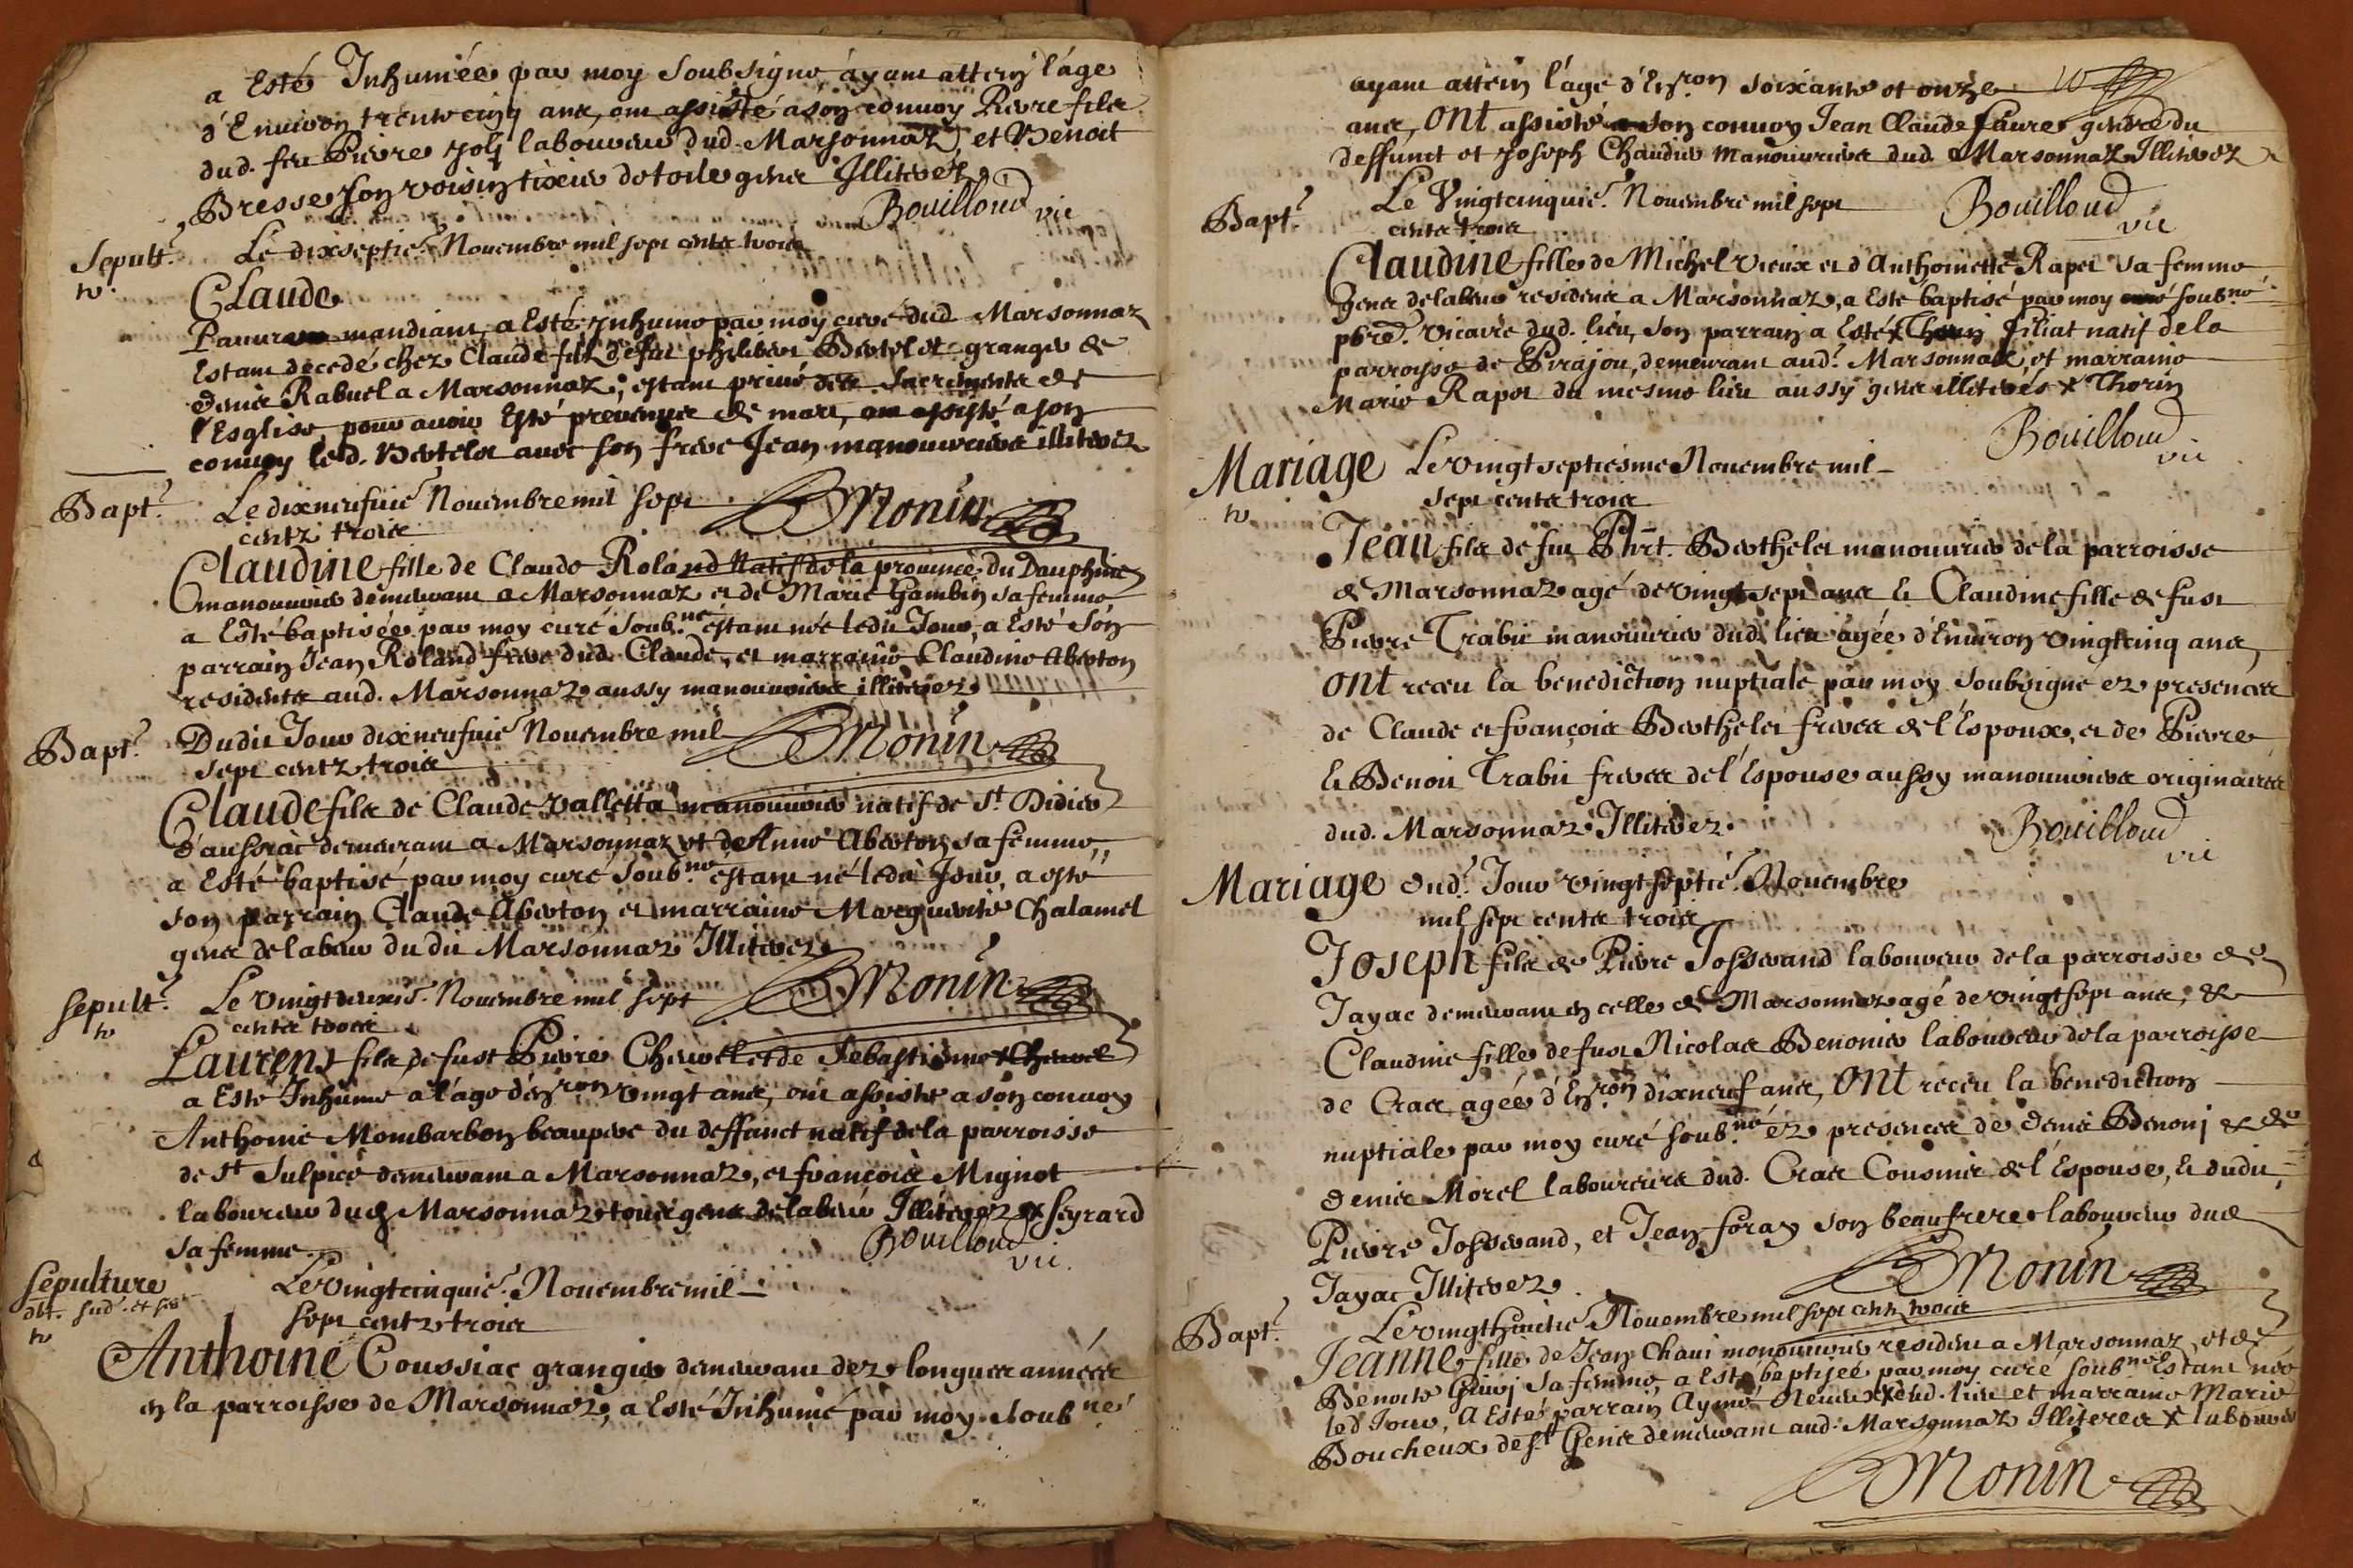 a Esté Inhumée par moy Soubsigne ayant attein l'age
d'Enuiron trente cinq ans, ont assisté a son conuoy Pierre fils
dud. feu Pierre Joly laboureur dud. Marsonnaz, et Benoit
Bresse son voisin tixier de toile gens Illiterez
Bouilloud vic
Sepult.
Le dixseptie. Nouembre mil sept cents trois
Claude
Pauure mandiant, a Esté Inhumé par moy curé dud Marsonnaz
Estant décedé chez Claude fils de feu philibert Bertelet granger de
denis Rabuel a Marsonnaz; estant priué des Sacrements de
l'Esglise pour auoir Esté preuenus de mort, ont assisté a son
conuoy led. Bertelet auec son frere Jean manouuriers illiterez
Bapt.
Le dixneufuie. Nouembre mil sept
cents trois
BMonin
Claudine fille de Claude Roland Natif de la prouince du Dauphiné
manouurier demeurant a Marsonnaz et de Marie Gambin sa femme
a Esté baptisée par moy curé Soub.né estant née ledit Jour, a Esté Son
parrain Jean Roland frere dud. Claude, et marraine Claudine Aberton
residents aud. Marsonnaz aussy manouuriers illiterez
Bapt.
Dudit Jour dixneufuie. Nouembre mil
sept cents trois
BMonin
Claude fils de Claude Valletta manouurier natif de St. Didier
d'aussiac demeurant a Marsonnaz et de Anne Aberton sa femme,
a Esté baptisé par moy curé Soub.né estant né ledit Jour, a esté
son parrain Claude Aberton et marraine Marguerite Chalamel
gens de labeur du dit Marsonnaz Illiterez
Sepult.
Le vingtdeuxie. Nouembre mil sept
cents trois
BMonin
Laurent fils de fust Pierre Cheurel et de Sebastienne x Cheurel
a Esté Inhumé a l'age d'en.ron vingt ans, ont assisté a son conuoy
Anthoine Mombarbon beaupere du deffunct natif de la parroisse
de St Sulpice demeurant a Marsonnaz, et françois Mignot
laboureur dud Marsonnaz tous gens de labeur Illiterez x feyrard
sa femme
Bouilloud
vic.
Sepulture
Le vingtcinquie. Nouembre mil
sept cents trois
Anthoine Coussiac granger demeurant dez longues années
en la parroisse de Marsonnaz, a Esté Inhumé par moy soub.né
ayant attein l'age d'En.ron soixante et onze
ans, Ont assisté a son conuoy Jean Claude faure gendre du
deffunct et Joseph Chaudier manouuriers dud. Marsonnaz Illiterez
Bapt.
Le Vingtcinquie. Nouembre mil sept
cents trois
Bouilloud
vic
Claudine fille de Michel Vieux et d'Anthoinette Rapet sa femme
gens de labeur residents a Marsonnaz, a Esté baptisé par moy soub.né
pbre. Vicaire dud. lieu, Son parrain a Esté x Filiat natif de la
parroisse de Pirajou, demeurant aud. Marsonnaz, et marraine
Marie Rapet du mesme lieu aussy gens illiterés x Thorin
Bouilloud
vic
Mariage
Le vingtseptiesme Nouembre mil
sept cents trois
Jean fils de feu Phrt. Berthelet manouurier de la parroisse
de Marsonnaz agé de vingt sept ans & Claudine fille de fust
Pierre Trabit manouurier dud. lieu agée d'Enuiron vingtcinq ans,
Ont receu la benediction nuptiale par moy Soubsigné ez presences
de Claude et françois Berthelet freres de l'Espoux, et de Pierre
& Benoit Trabit freres de l'Espouse aussy manouuriers originaires
dud. Marsonnaz Illiterez.
Bouilloud
vic
Mariage
dud. Jour vingtseptie. Nouembre
mil sept cents trois
Joseph fils de Pierre Josserand laboureur de la parroisse de
Jayac demeurant en celle de Marsonnaz agé de vingt sept ans, &
Claudine fille de fust Nicolas Benonier laboureur de la parroisse
de Cras, agée d'En.ron dixneuf ans, Ont receu la benediction
nuptiale par moy curé soub.né ez presences de denis Benonj & de
denis Morel laboureurs dud. Cras Cousins de l'Espouse, & dudit
Pierre Josserand, et Jean foray son beaufrere laboureur dud
Jayac Illiterez.
BMonin
Bapt.
Le vingthuictie. Nouembre mil sept cents trois
Jeanne fille de Jean Chani manouurier resident a Marsonnaz, et de
Benoite Guioj sa femme, a Esté baptisée par moy curé soub.né Estant née
led Jour, a Esté parrain Aymé x dud. lieu et marraine Marie
Boucheux de St Genis demeurant aud. Marsonnaz Illiteres x laboureur
BMonin